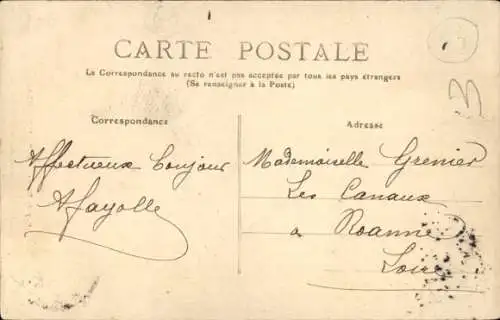 CARTE POSTALE
La Correspondance au recto n'est pas acceptée par tous les pays étrangers
(Se renseigner à la Poste)
Correspondance
Adresse
Affectueux bonjour
A Fayolle
Mademoiselle Grenier
Les Canaux
à Roanne
Loire
3